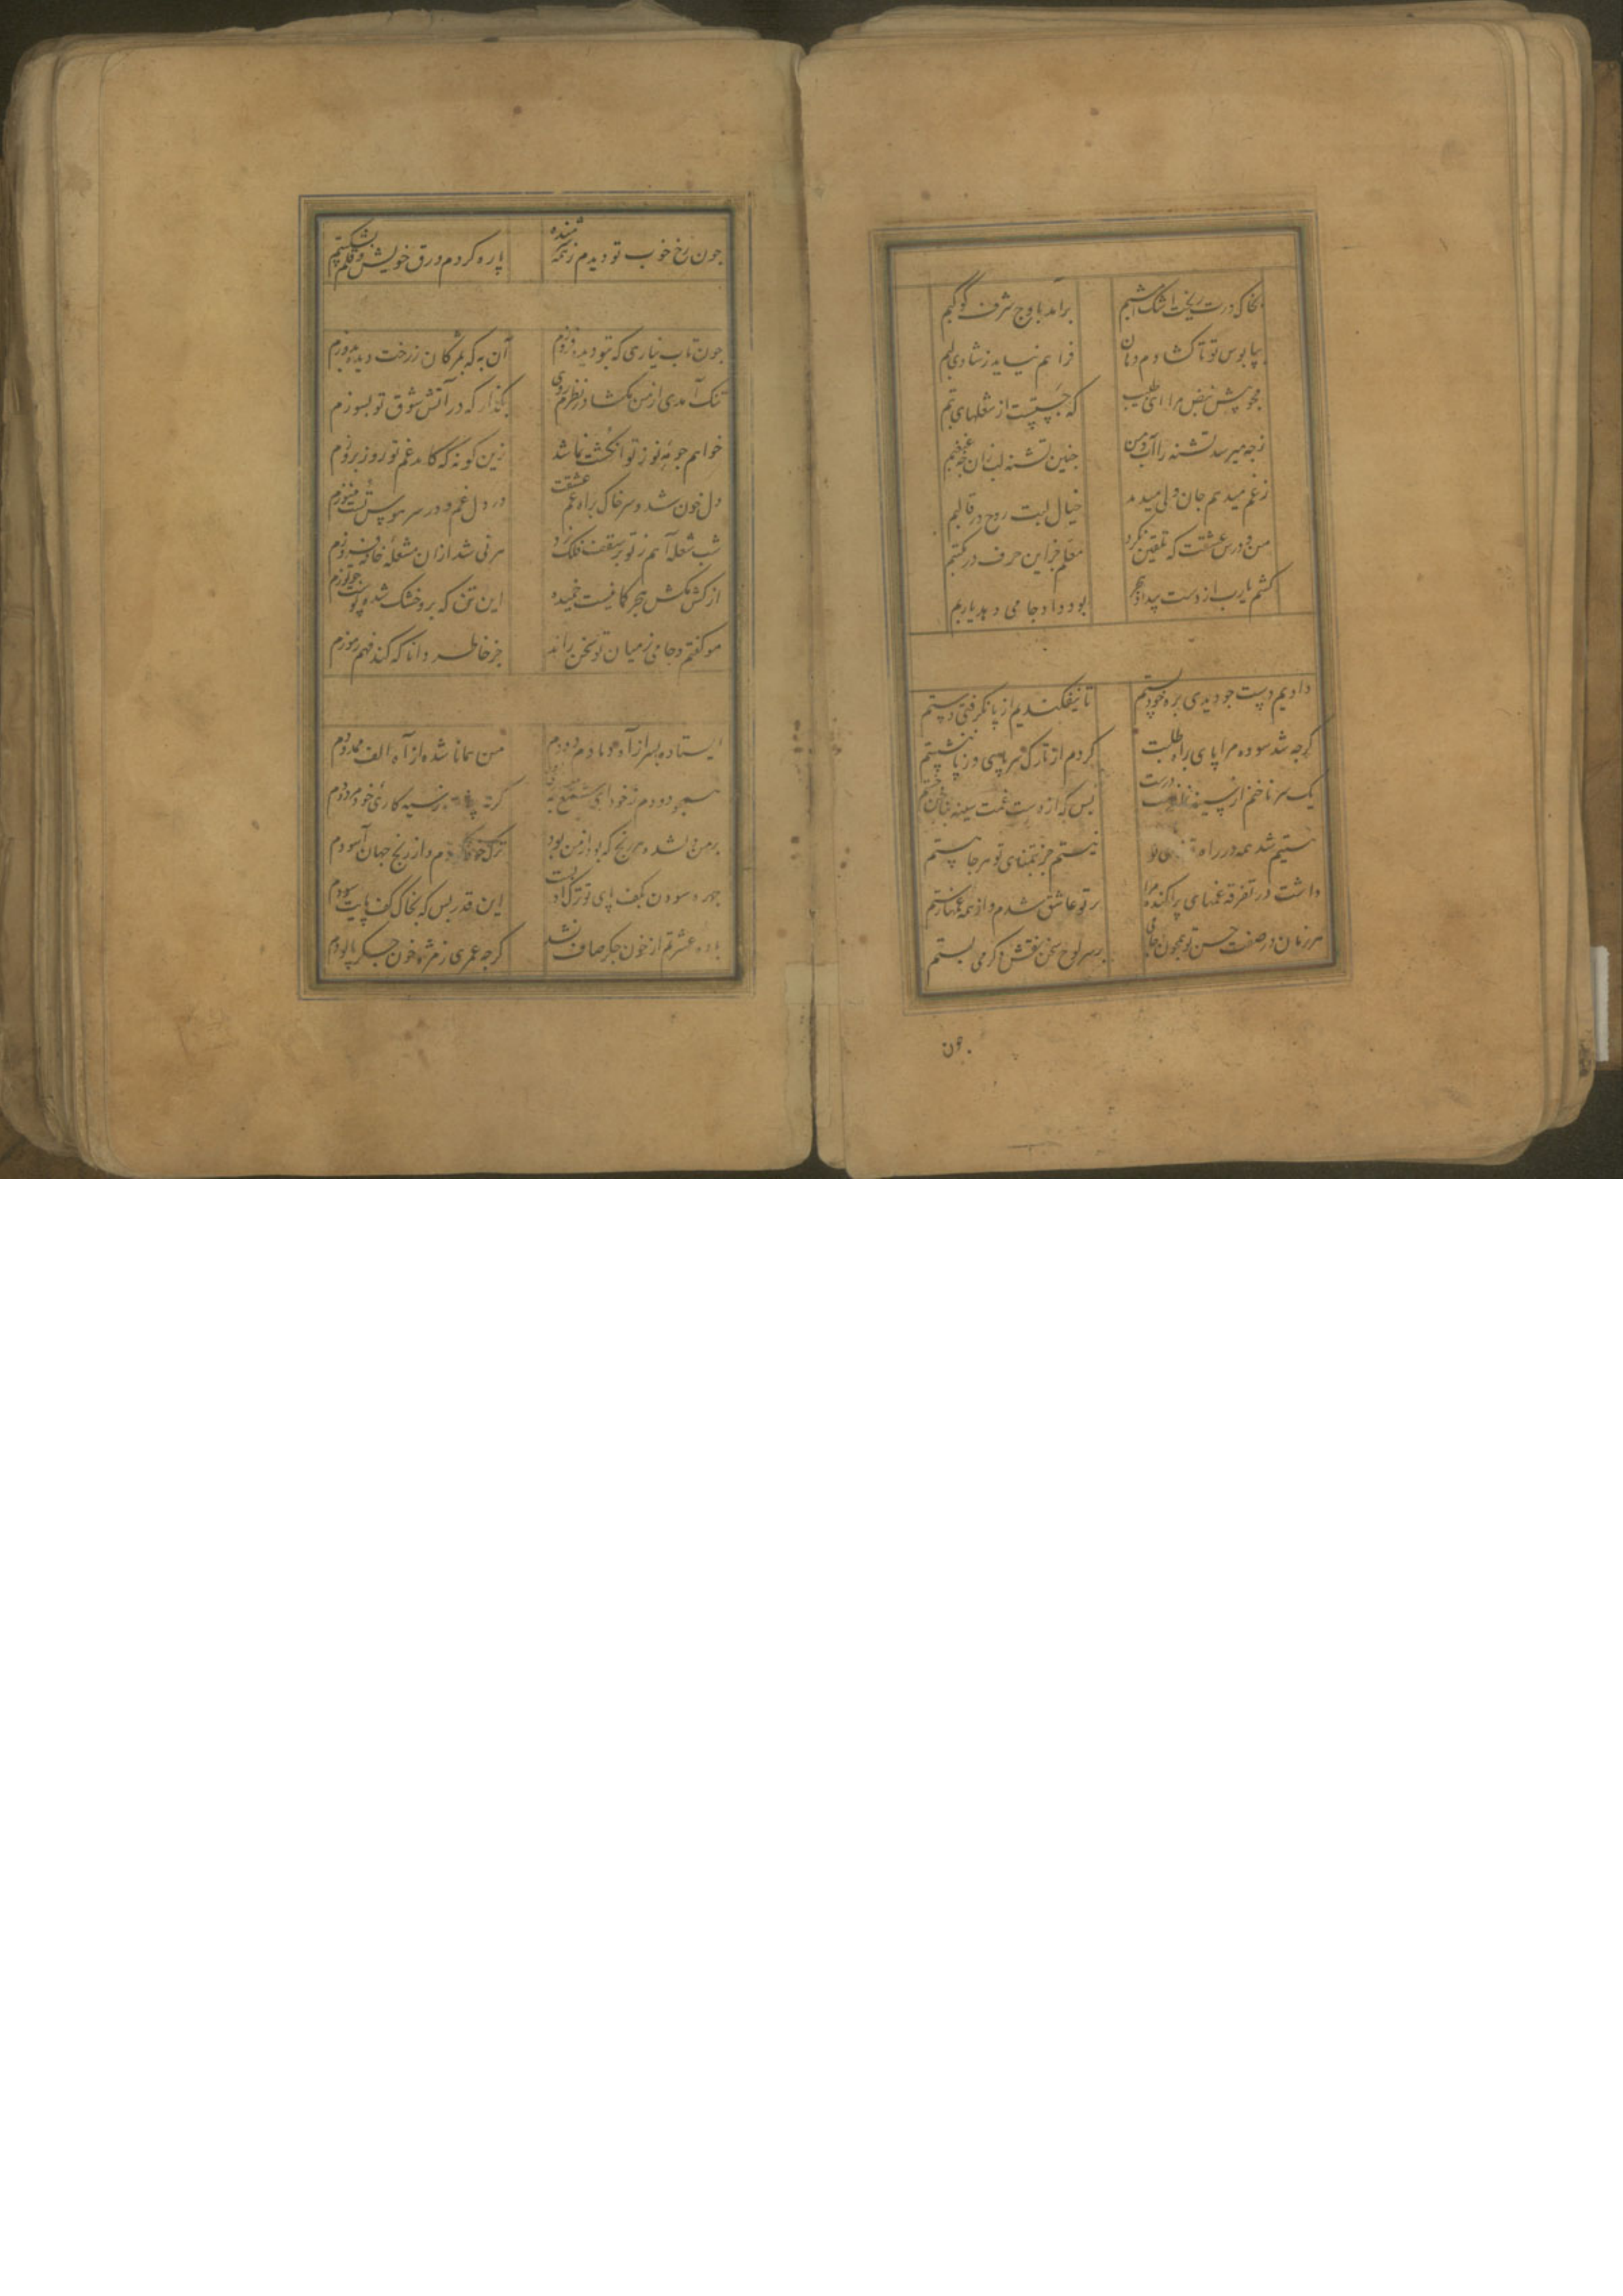 بخاک درت ریخت اشک شبم برآمد باوج شرف کوکبم
بپا بوس تو تا کشادم دهان فراهم نیاید ز شادی لبم
مجو پیش نبض مرا ای طبیب که جست از شعلهای تبم
ز جه میرسد تشنه را آب و من جنین تشنه لب زان جه غبغبم
ز غم میدهم جان ولی میدمد خیال لبت روح در قالبم
من و درس عشقت که تلقین نکرد معلم جز این حرف در مکتبم
کشم یارب از دست بیداد هجر بود داد جامی دهد یاربم
دادیم دست جو دیدی بره خود پستم تا نیفکندیم از پا نگرفتی دستم
کرجه شد سوده مرا پای براه طلبت کردم از تارک سر پای و ز پا ننشستم
یک سر ناخنم از سینه درست بس که از دست غمت سینه بناخن خستم
نیستیم شد همه در راه تو نیستم جز بتمنای تو هر جا هستم
داشت در تفرقه غمهای پراکنده مرا بر تو عاشق شدم و از همه غمها رستم
هر زمان در صفت حسن تو همچون جامی بر سر لوح سخن نقش دکر می بستم
جون
جون رخ خوب تو دیدم ز همه شرمنده پاره کردم ورق خویش و قلم بشکستم
جون تاب نیاری که بتو دیده فروزم آن به که بمژکان ز رخت دیده بدوزم
تنک آمدی از من مکشا در نظرم روی بکذار که در آتش شوق تو بسوزم
خواهم جو مه نو ز تو انکشت نما شد زین کونه که کاهد غم تو روز بروزم
دل خون شد و سر خاک براه غم عشقت در دل غم و در سر هوس تست هنوزم
شب شعله آهم ز تو بر سقف فلک زد هر نی شد ازان مشعله خانه فروزم
از کش مکش هجر کمانیست خمیده این تن که برو خشک شد پوست جو توزم
مو کفتم و جامی ز میان تو سخن راند جز خاطر دانا که کند فهم رموزم
ایستاده بسر از آه دمادم دودم من همانا شده از آه الف ممدودم
همجو دودم ز خود ای شمع سیه کاری خود مردودم
بر من آمد همه رنج که بود از من بود ترک خود کردم و از رنج جهان آسودم
جهره سودن بکف پای تو ترک ادبست این قدر بس که بخاک کف پایت سودم
باده عشرتم از خون جکر صاف نشد کرجه عمری ز مژه خون جکر پالودم